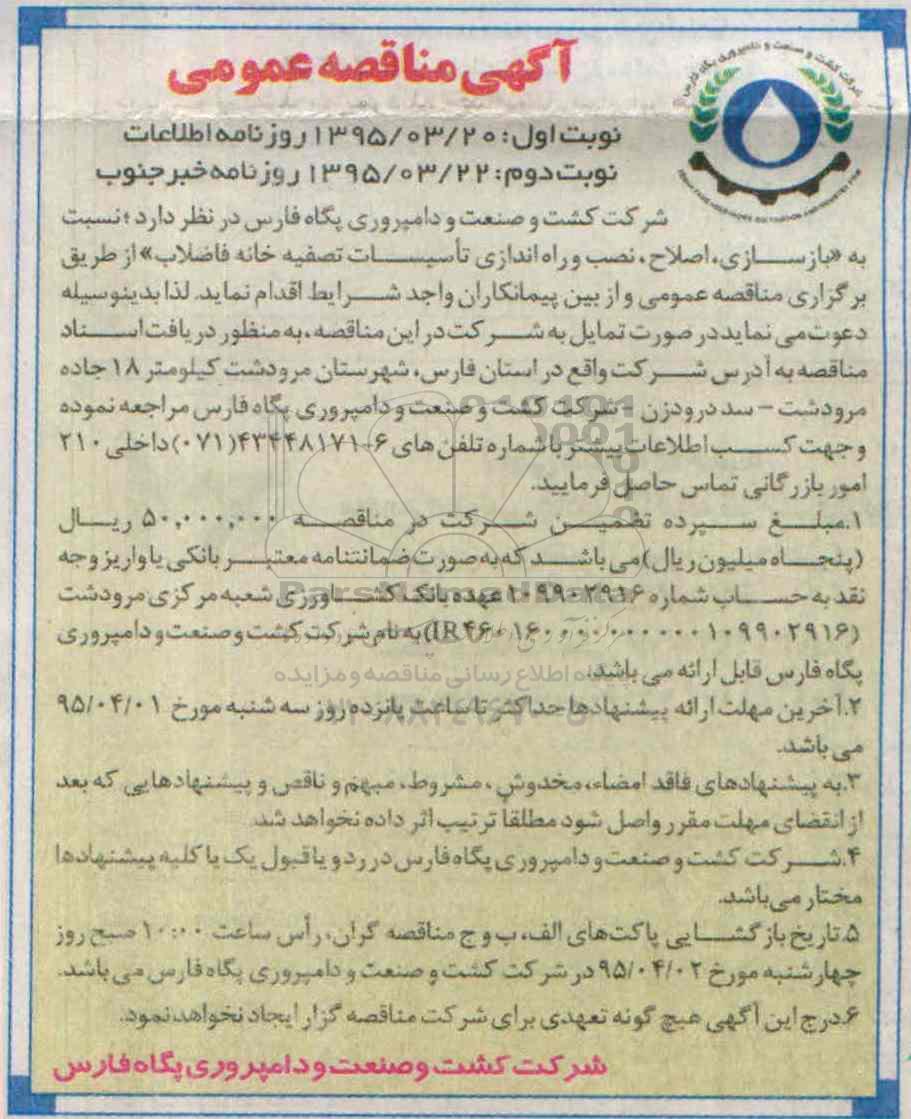 شرکت کشت و صنعت و دامپروری پگاه فارس
آگهی مناقصه عمومی
نوبت اول: ۱۳۹۵/۰۳/۲۰ روزنامه اطلاعات
نوبت دوم: ۱۳۹۵/۰۳/۲۲ روزنامه خبر جنوب
شرکت کشت و صنعت و دامپروری پگاه فارس در نظر دارد ؛ نسبت
به «بازسازی، اصلاح ، نصب و راه اندازی تأسیسات تصفیه خانه فاضلاب» از طریق
برگزاری مناقصه عمومی و از بین پیمانکاران واجد شرایط اقدام نماید. لذا بدینوسیله
دعوت می نماید در صورت تمایل به شرکت در این مناقصه ، به منظور دریافت اسناد
مناقصه به آدرس شرکت واقع در استان فارس، شهرستان مرودشت کیلومتر ۱۸ جاده
مرودشت – سد درودزن – شرکت کشت و صنعت و دامپروری پگاه فارس مراجعه نموده
و جهت کسب اطلاعات بیشتر با شماره تلفن های ۶-۴۳۴۴۸۱۷۱(۰۷۱) داخلی ۲۱۰
امور بازرگانی تماس حاصل فرمایید.
۱.مبلغ سپرده تضمین شرکت در مناقصه ۵۰,۰۰۰,۰۰۰ ریال
(پنجاه میلیون ریال) می باشد که به صورت ضمانتنامه معتبر بانکی یا واریز وجه
نقد به حساب شماره ۱۰۹۹۰۲۹۱۶ عهده بانک کشاورزی شعبه مرکزی مرودشت
(IR۴۶۰۱۶۰۰۰۰۰۰۰۰۰۰۰۱۰۹۹۰۲۹۱۶) به نام شرکت کشت و صنعت و دامپروری
پگاه فارس قابل ارائه می باشد.
۲.آخرین مهلت ارائه پیشنهادها حداکثر تا ساعت پانزده روز سه شنبه مورخ ۹۵/۰۴/۰۱
می باشد.
۳.به پیشنهادهای فاقد امضاء، مخدوش ، مشروط ، مبهم و ناقص و پیشنهادهایی که بعد
از انقضای مهلت مقرر واصل شود مطلقاً ترتیب اثر داده نخواهد شد.
۴.شرکت کشت و صنعت و دامپروری پگاه فارس در رد و یا قبول یک یا کلیه پیشنهادها
مختار می باشد.
۵.تاریخ بازگشایی پاکت های الف، ب و ج مناقصه گران، رأس ساعت ۱۰:۰۰ صبح روز
چهارشنبه مورخ ۹۵/۰۴/۰۲ در شرکت کشت و صنعت و دامپروری پگاه فارس می باشد.
۶.درج این آگهی هیچ گونه تعهدی برای شرکت مناقصه گزار ایجاد نخواهد نمود.
شرکت کشت و صنعت و دامپروری پگاه فارس